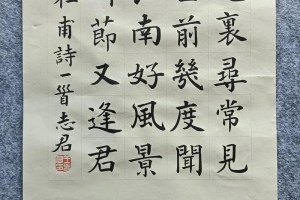 裏尋常見
前幾度聞
南好風景
節又逢君
杜甫詩一首志君